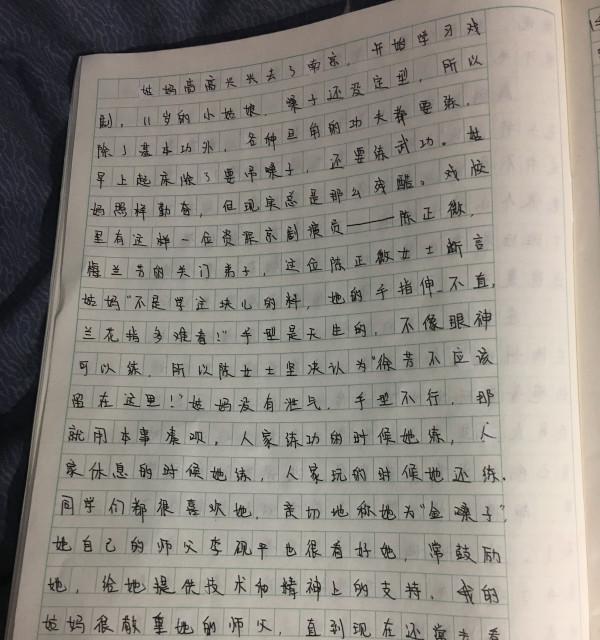 姑妈高高兴兴去了南京，开始学习戏
剧，11岁的小姑娘，嗓子还没定型，所以
除了基本功外，各种旦角的功夫都要练，
早上起床除了要吊嗓子，还要练武功。姑
妈照样勤奋，但现实总是那么残酷。戏校
里有这样一位资深京剧演员——陈正薇，
梅兰芳的关门弟子，这位陈正薇女士断言
姑妈“不是学这块儿的料，她的手指伸不直，
兰花指多难看！”手型是天生的，不像眼神
可以练，所以陈女士坚决认为“徐芳不应该
留在这里！”姑妈没有泄气，手型不行，那
就用本事凑呗，人家练功的时候她练，人
家休息的时候她练，人家玩的时候她还练。
同学们都很喜欢她，亲切地称她为“金嗓子”，
她自己的师父李砚平也很看好她，常鼓励
她，给她提供技术和精神上的支持，我的
姑妈很敬重她的师父，直到现在还常去看